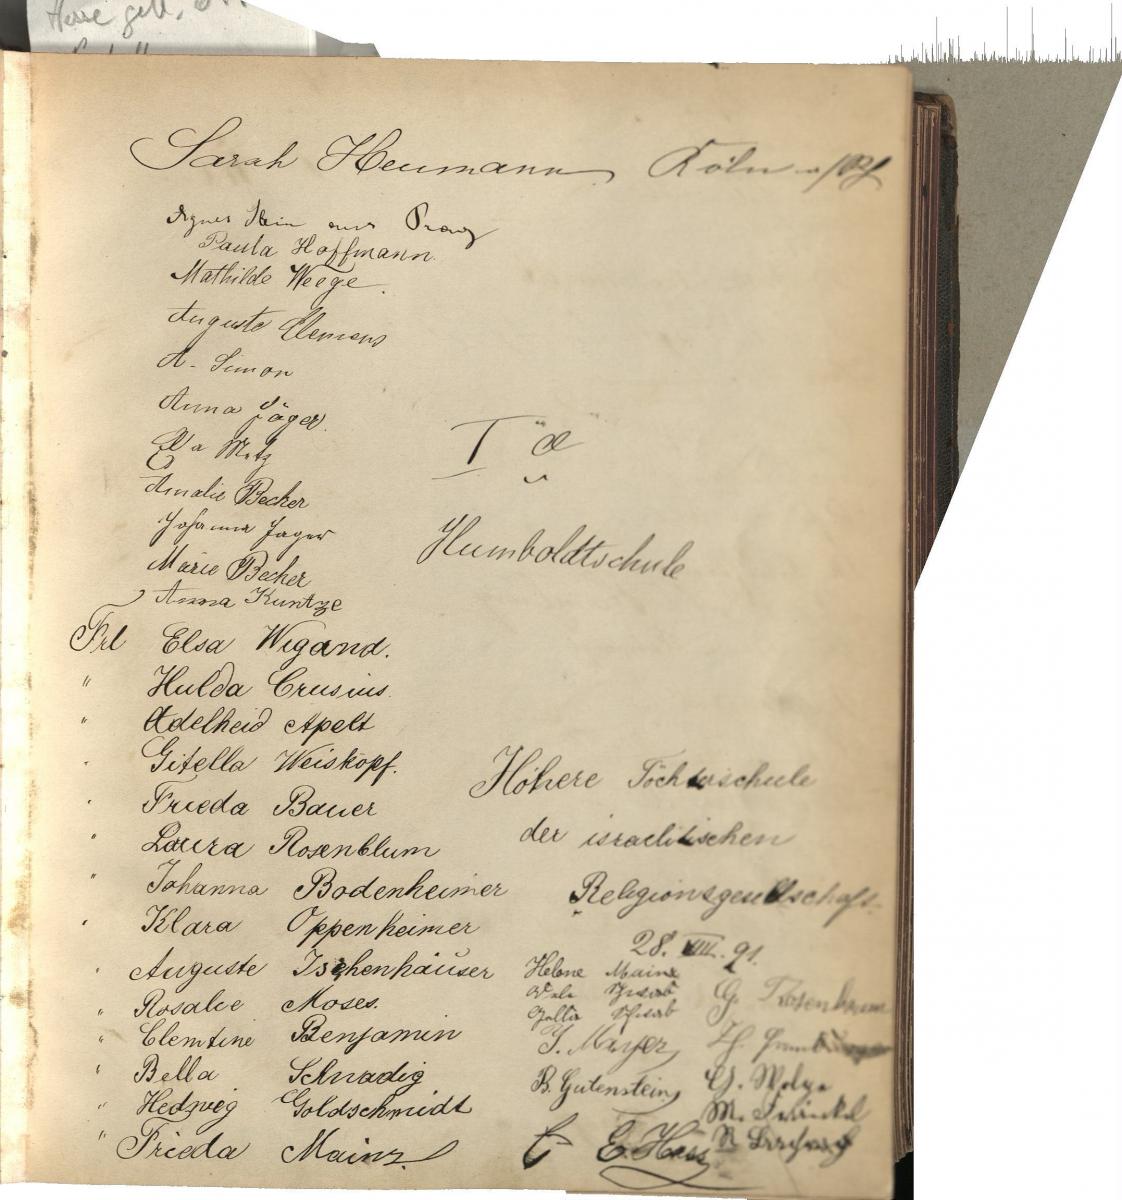 Hesse geb.
Sarah Heumann Köln a/Rh
Agnes Stein aus Prag
Paula Hoffmann.
Mathilde Weege.
Auguste Clemens
A. Simon
Anna Jäger.
Ella Metz
Amalie Becker
Johanna Jager
Marie Becher
Anna Kuntze
I a
Humboldtschule
Frl Elsa Wigand.
" Hulda Crusius.
" Adelheid Apelt
" Gitella Weiskopf.
" Frieda Bauer
" Laura Rosenblum
" Johanna Bodenheimer
" Klara Oppenheimer
" Auguste Ischenhäuser
" Rosalie Moses.
" Clemtine Benjamin
" Bella Schnadig
" Hedwig Goldschmidt
" Frieda Mainz.
Höhere Töchterschule
der israelitischen
Religionsgesellschaft.
28. VIII. 91.
Helene Mainz
J. Mayer
B. Gutenstein
E. Hess
G. Rosenbaum
H.
M.